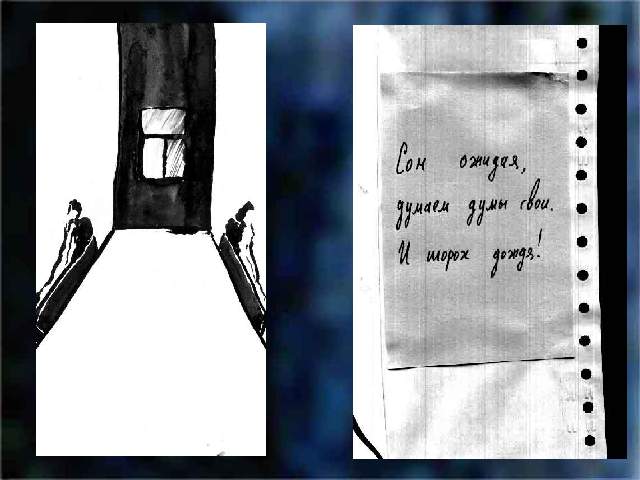 Сон ожидая,
думаем думы свои.
И шорох дождя!